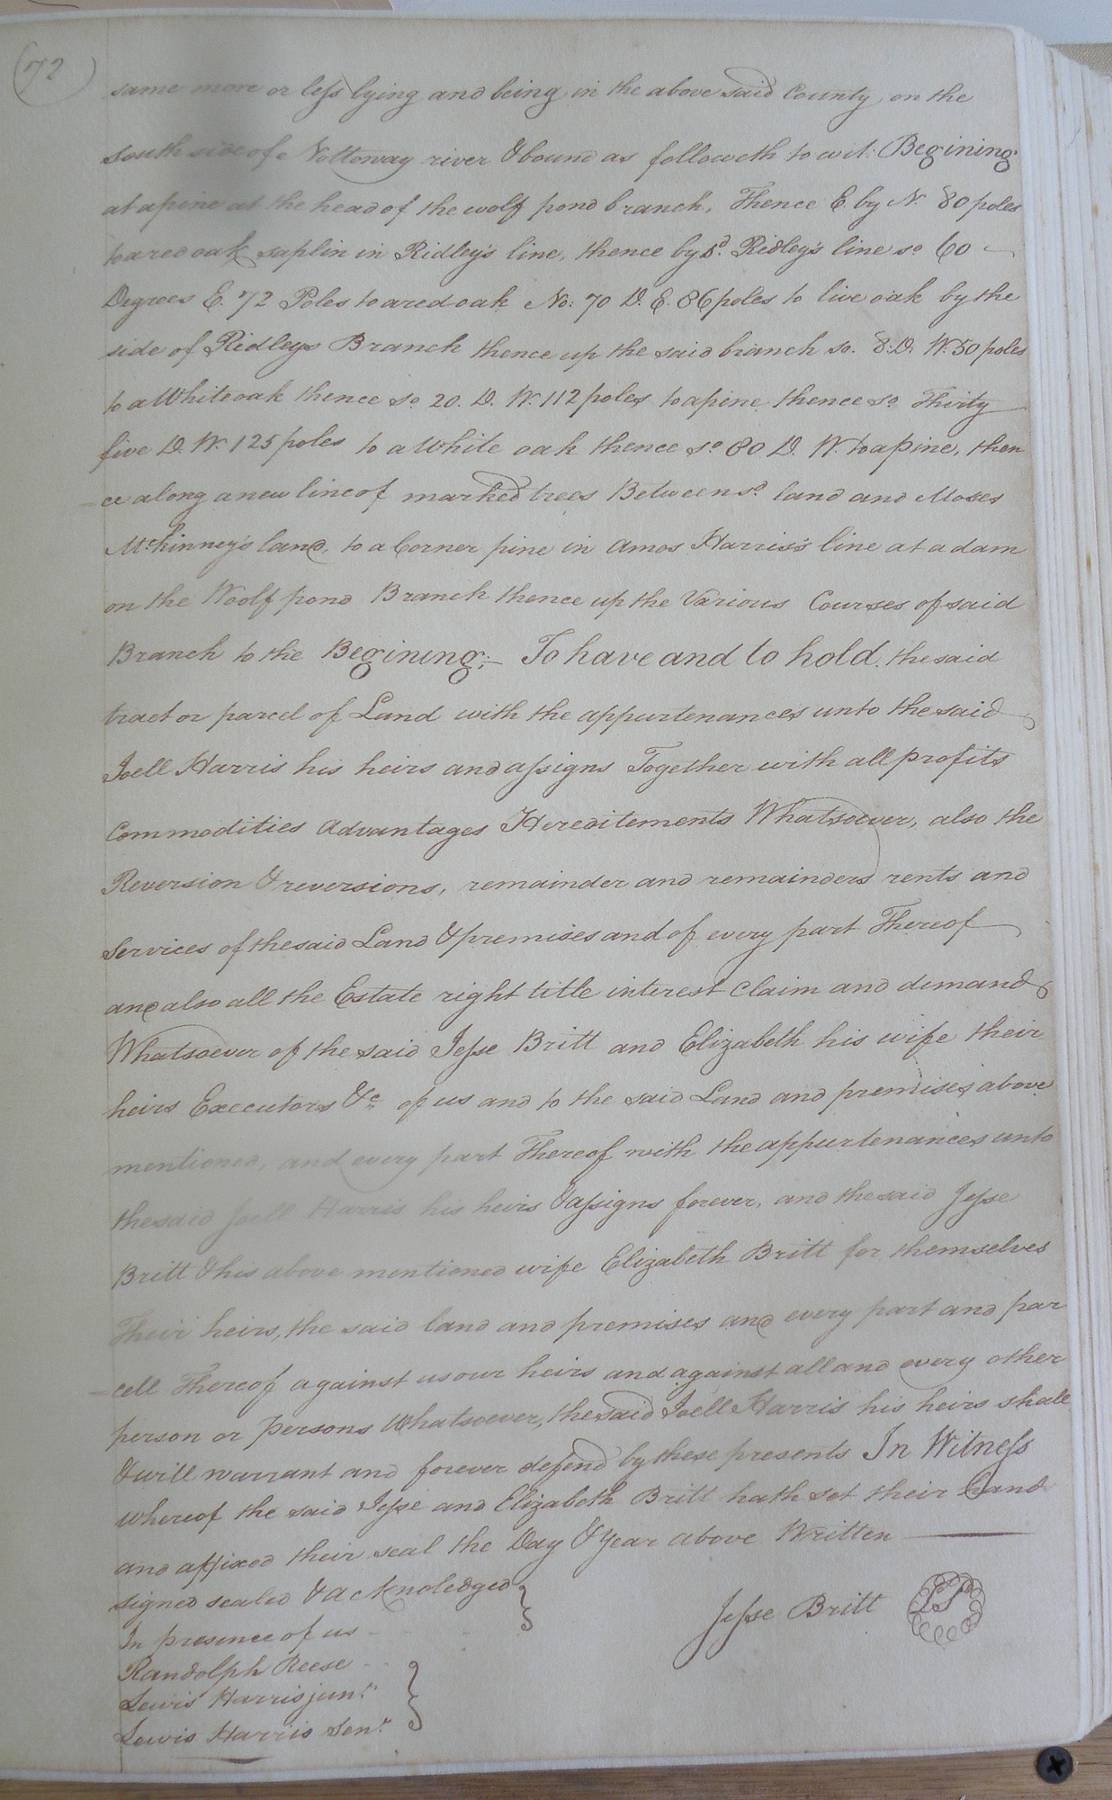 (72)
same more or less lying and being in the above said County, on the
South side of Nottoway river & bound as followeth to wit: Begining
at a pine at the head of the wolf pond branch, Thence E. by N. 80 poles
to a red oak saplin in Ridley's line, thence by sd. Ridley's line so. 60
Degrees E. 72 Poles to a red oak No: 70 D. E. 86 poles to live oak by the
side of Ridleys Branch thence up the said branch so. 8. D. W. 50 poles
to a White oak thence so 20. D. W. 112 poles to a pine thence so Thirty
five D. W. 125 poles to a White oak thence so 80 D. W. to a pine, then
ce along a new line of marked trees Between sd. land and Moses
McKinney's land, to a Corner pine in Amos Harris's line at a dam
on the Woolf pond Branch thence up the Various Courses of said
Branch to the Begining;- To have and to hold. the said
tract or parcel of Land with the appurtenances unto the said
Joell Harris his heirs and assigns Together with all profits
Commodities Advantages Hereditements Whatsoever, also the
Reversion & reversions, remainder and remainders rents and
Services of the said Land & premises and of every part Thereof
and also all the Estate right title interest Claim and demand
Whatsoever of the said Jesse Britt and Elizabeth his wife their
heirs Executors &c of us and to the said Land and premises above
mentioned, and every part Thereof with the appurtenances unto
the said Joell Harris his heirs & assigns forever, and the said Jesse
Britt & his above mentioned wife Elizabeth Britt for themselves
Their heirs, the said land and premises and every part and par
cell Thereof against us our heirs and against all and every other
person or persons Whatsoever, the said Joell Harris his heirs shall
& will warrant and forever defend by these presents In Witness
whereof the said Jesse and Elizabeth Britt hath set their hand
and affixed their seal the Day & Year above Written
signed sealed & acknoledged }
In presence of us
Jesse Britt LS
Randolph Reese
Lewis Harris junr. }
Lewis Harris Senr.